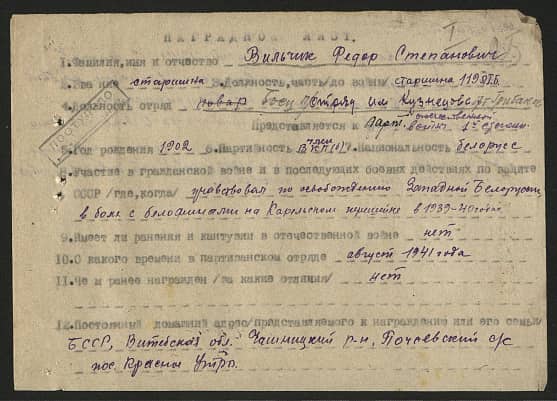 НАГРАДНОЙ ЛИСТ.
1.Фамилия,имя и отчество Вильчик Федор Степанович
2. старшина 3.Должность,часть/до войны старшина 119
4.Должность отряд повар отряд им Кузнецова
Представляется к Отечественной войны 1й степени
5.Год рождения 1902 6.Партийность член ВКП(б) 7.Национальность белорус
8.Участие в гражданской войне и в последующих боевых действиях по защите
СССР /где,когда/ участвовал по освобождению Западной Белоруссии,
в боях с белофинами на Карельском перешейке в 1939-40 годах
9.Имеет ли ранения и контузии в отечественной войне нет
10.С какого времени в партизанском отряде август 1941 года
11.Чем ранее награжден /за какие отличия/ нет
12.Постоянный домашний адрес/представляемого к награждению или его семьи/
БССР, Витебская обл. Чашницкий р-н, Почаевский с/с
пос. Красны Утро.